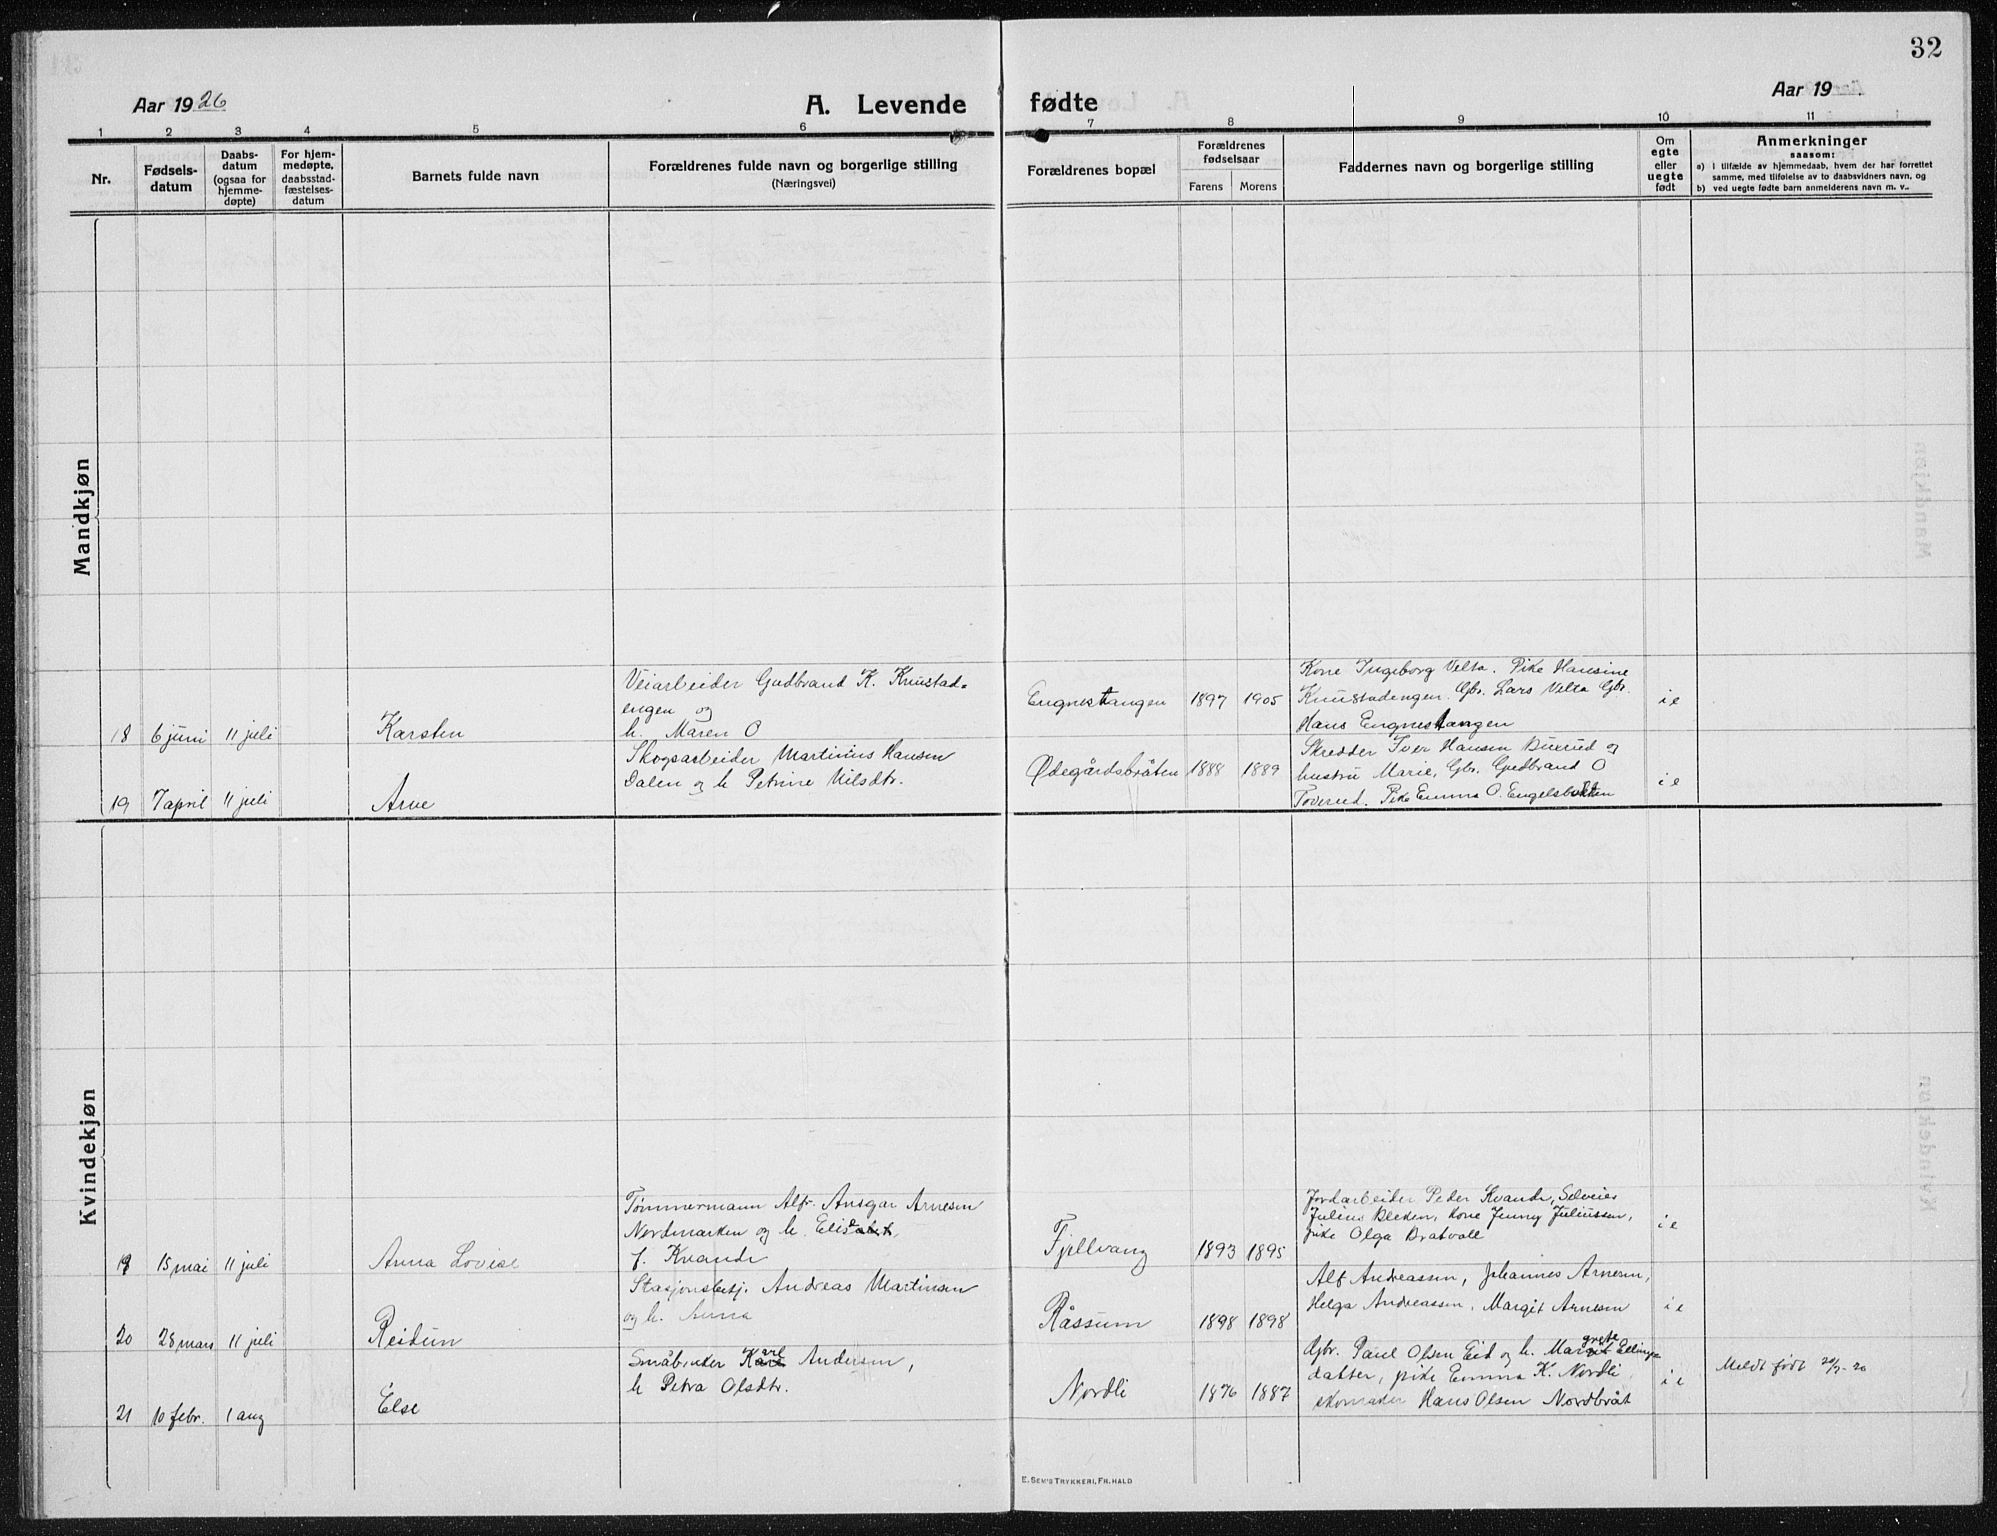 32
Aar 1926
A. Levende fødte
Aar 19
1 2 3 4 5 6 7 8 9 10 11
Nr.
Fødsels-
datum
Daabs-
datum
(ogsaa for
hjemme-
døpte)
For hjem-
medøpte,
daabsstad-
fæstelses-
datum
Barnets fulde navn
Forældrenes fulde navn og borgerlige stilling
(Næringsvei)
Forældrenes bopæl
Forældrenes
fødselsaar
Farens Morens
Faddernes navn og borgerlige stilling
Om
egte
eller
uegte
født
Anmerkninger
saasom:
a) i tilfælde av hjemmedaab, hvem der har forrettet
samme, med tilføielse av to daabsvidners navn, og
b) ved uegte fødte barn anmelderens navn m. v..
Mandkjøn
18 6 juni 11 juli Karsten
Veiarbeider Gudbrand K. Knustad-
engen og
h. Maren O
Engnestangen 1897 1905
Kone Ingeborg Velta. Pike Hansine
Knustadengen. Gbr. Lars Velta Gbr.
Hans Engnestangen
i e
19 7 april 11 juli Arve
Skogsarbeider Martinius Hansen
Dalen og h Petrine Nilsdtr.
Ødegårdsbråten 1888 1889
Skredder Iver Hansen Buerud og
hustru Marie, Gbr. Gudbrand O
Toverud. Pike Emma O. Engelsbukten
i e
Kvindekjøn
19 15 mai 11 juli Anna Lovise
Tømmermann Alfr. Ansgar Arnesen
Nordmarken og h.
f. Kvande
Fjellvang 1893 1895
Jordarbeider Peder Kvande, Selveier
Julius Bleken, kone Jenny Juliussen,
pike Olga Bratvoll
i e
20 28 mars 11 juli Reidun
Stasjonsbetj. Andreas Martinsen
og h. Anna
Råssum 1898 1898
Alf Andreassen, Johannes Arnesen,
Helga Andreassen, Margit Arnesen
i e
21 10 febr. 1 aug Else
Småbruker Karl Andersen,
h Petra Olsdtr.
Nordli 1876 1887
Gbr. Paul Olsen Eid og h. Margrete Ellings-
datter, pike Emma K. Nordli,
skomaker Hans Olsen Nordbråt
i e
Meldt født
E. SEM'S TRYKKERI, FR.HALD